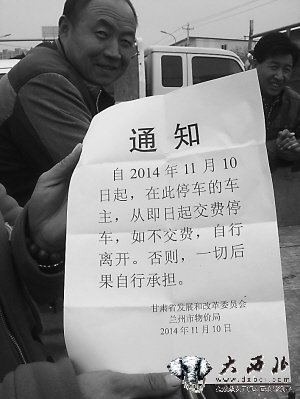 通知
自2014年11月10
日起，在此停车的车
主，从即日起交费停
车，如不交费，自行
离开。否则，一切后
果自行承担。
甘肃省发展和改革委员会
兰州市物价局
2014年11月10日
大西北
www.dxbei.com